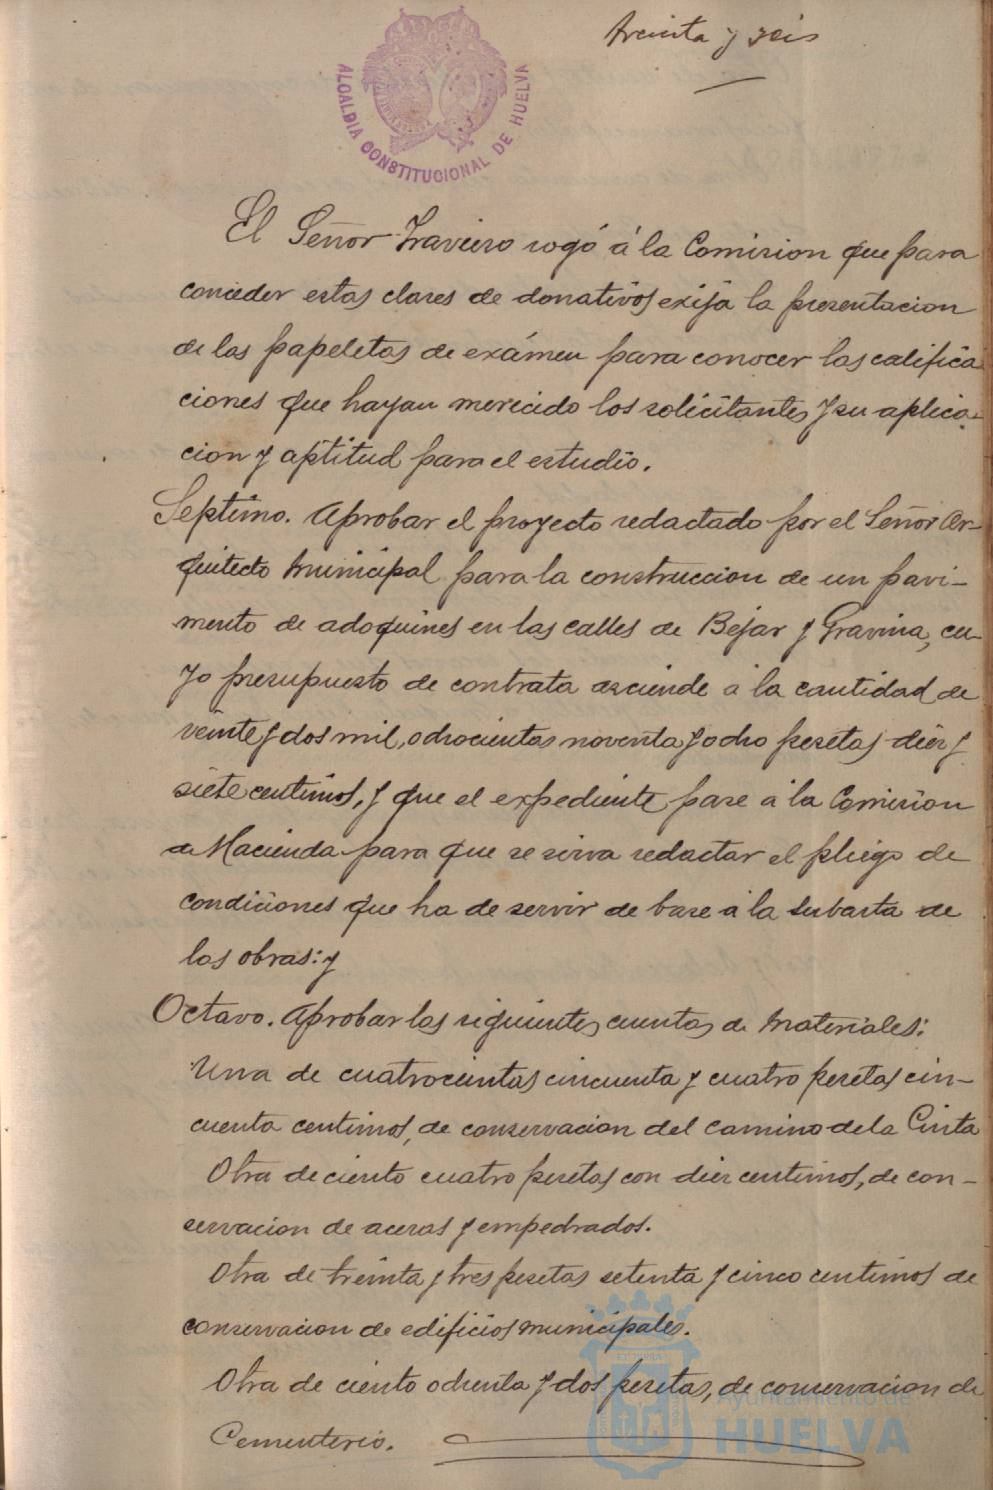 treinta y seis
ALCALDIA CONSTITUCIONAL DE HUELVA
El Señor Traviero rogó á la Comision que para
conceder estas clases de donativos exija la presentacion
de las papeletas de exámen para conocer las califica-
ciones que hayan merecido los solicitantes y su aplica-
cion y aptitud para el estudio.
Septimo. Aprobar el proyecto redactado por el Señor Ar-
quitecto Municipal para la construccion de un pavi-
mento de adoquines en las calles de Bejar y Gravina, cu-
yo presupuesto de contrata asciende á la cantidad de
veinte y dos mil, ochocientas noventa y ocho pesetas diez y
siete centimos, y que el expediente pase á la Comision
de Hacienda para que se sirva redactar el pliego de
condiciones que ha de servir de base á la subasta de
las obras: y
Octavo. Aprobar las siguientes cuentas de materiales:
Una de cuatrocientas cincuenta y cuatro pesetas cin-
cuenta centimos, de conservacion del camino de la Cinta
Otra de ciento cuatro pesetas con diez centimos, de con-
servacion de aceras y empedrados.
Otra de treinta y tres pesetas setenta y cinco centimos de
conservacion de edificios municipales.
Otra de ciento ochenta y dos pesetas, de conservacion de
Cementerio.
Ayuntamiento de
HUELVA